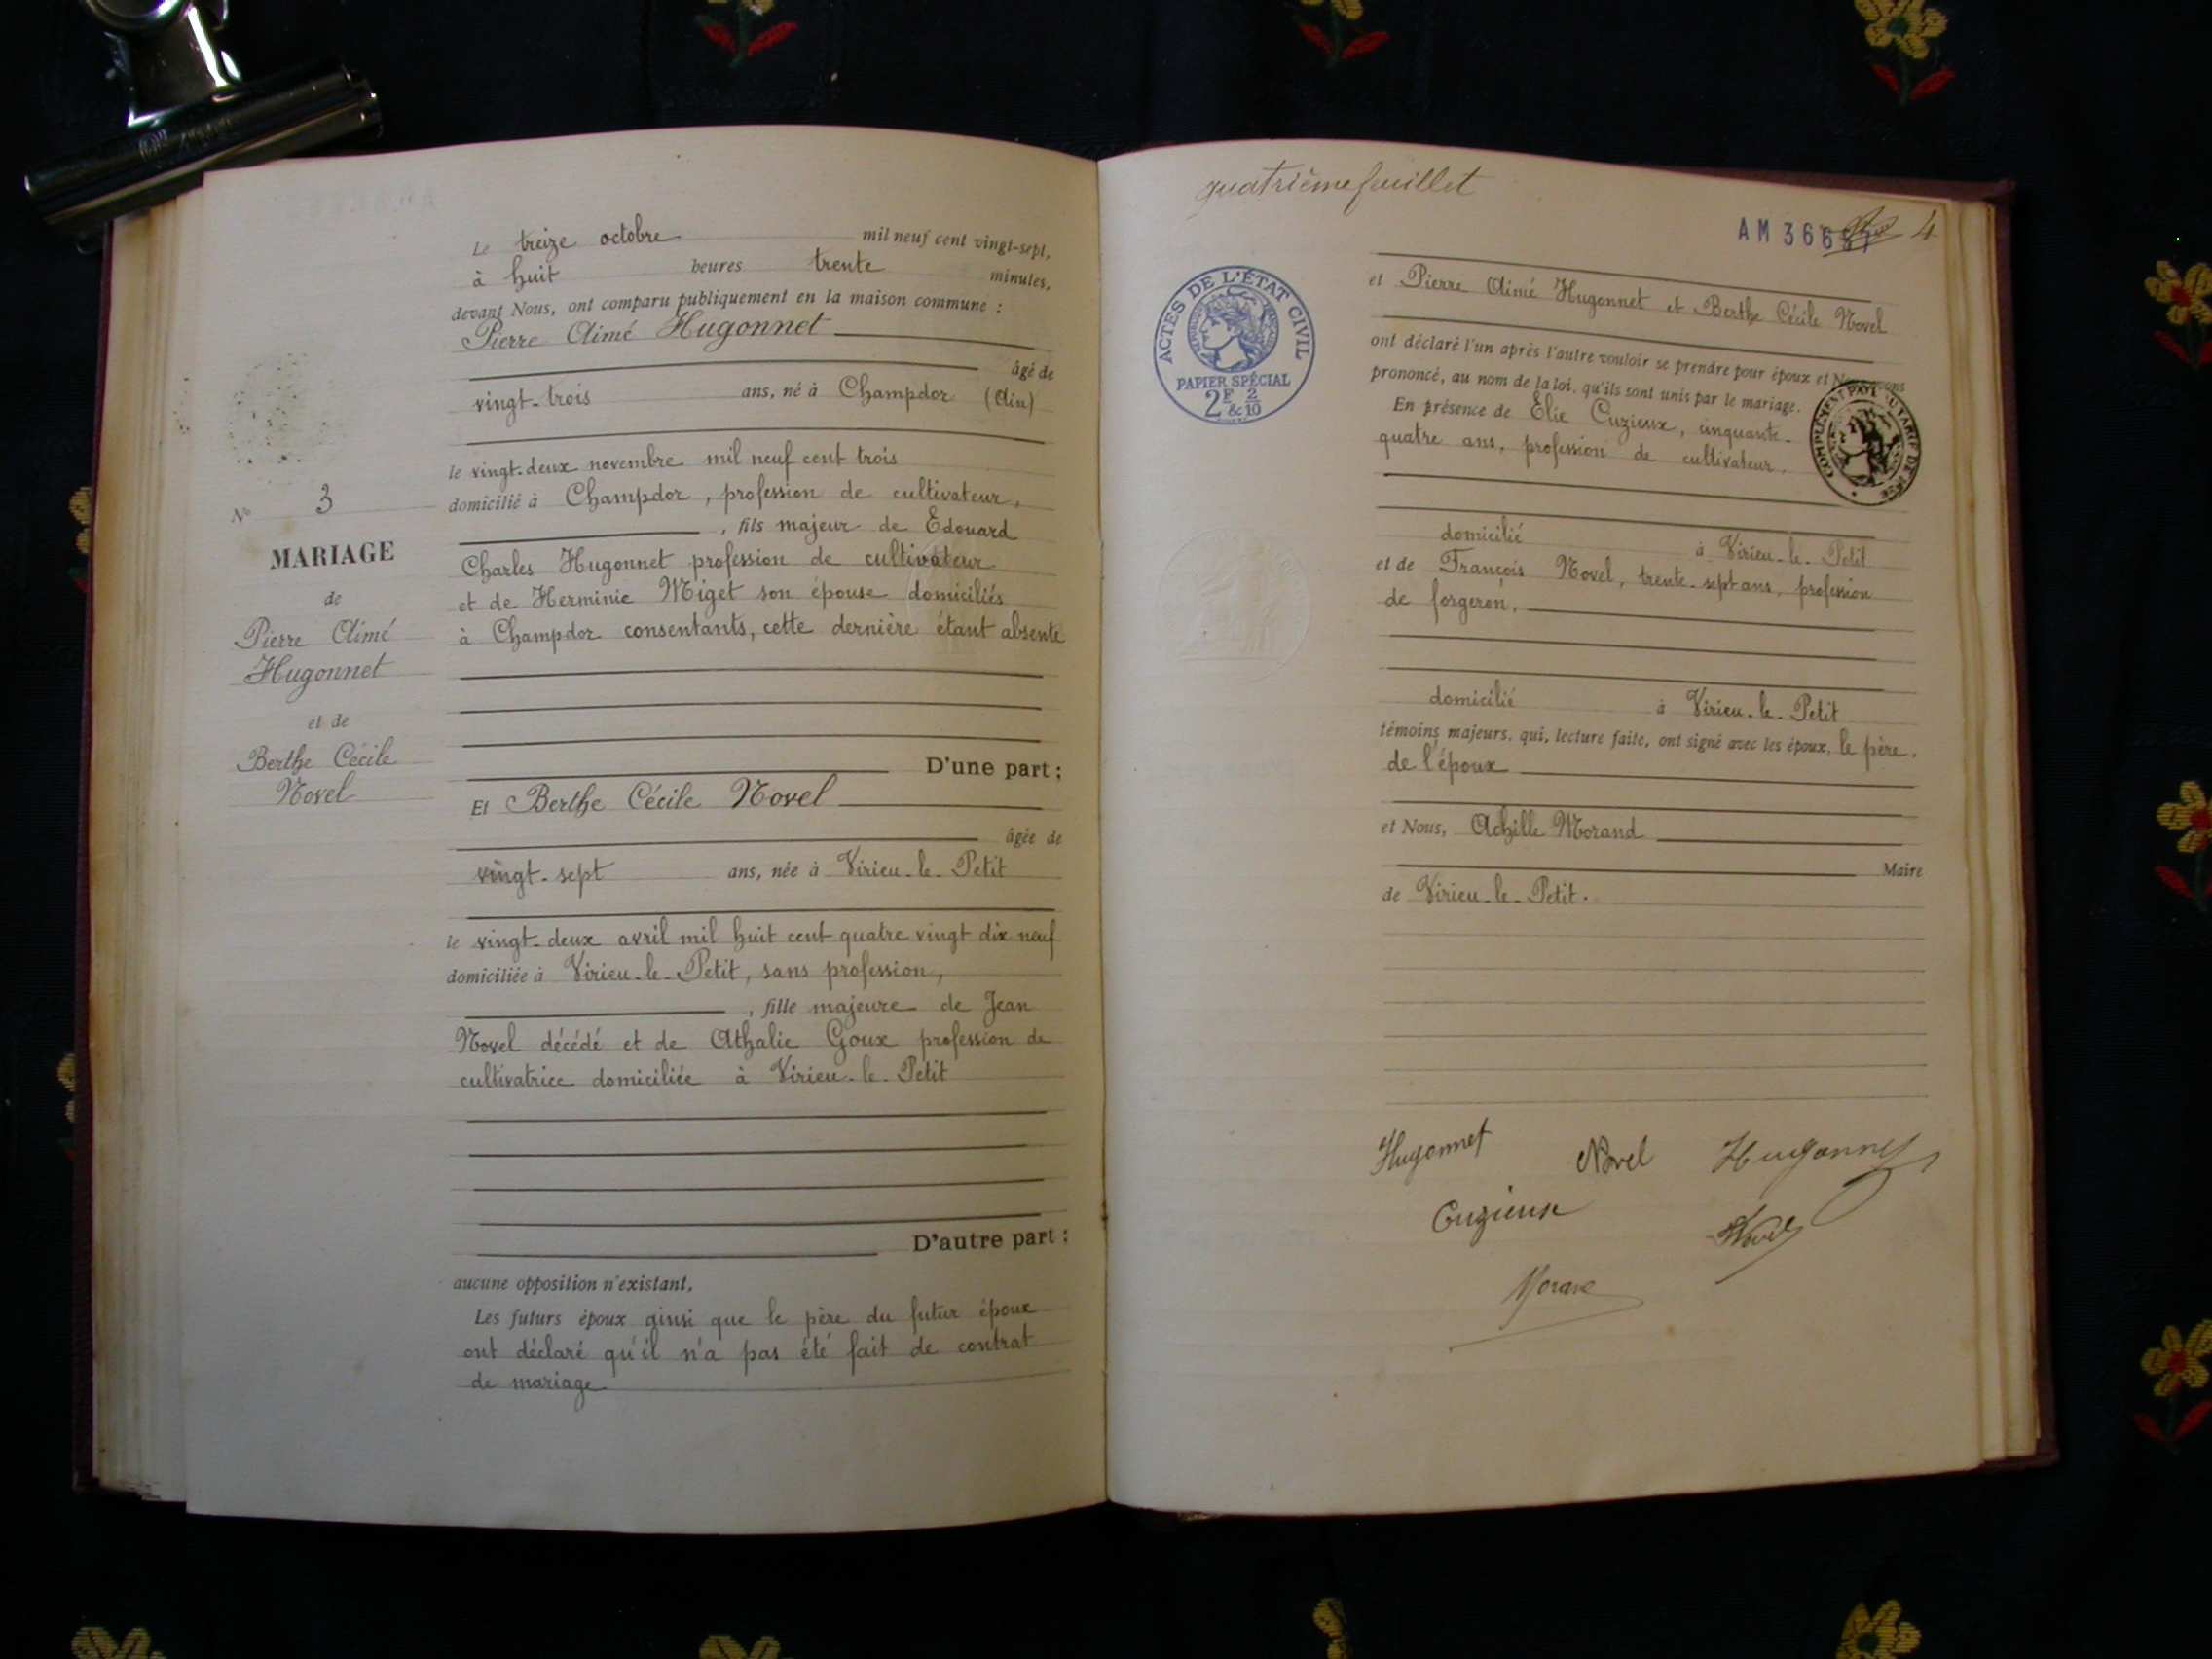 Le treize octobre mil neuf cent vingt-sept,
à huit heures trente minutes,
devant Nous, ont comparu publiquement en la maison commune :
Pierre Aimé Hugonnet
âgé de
vingt-trois ans, né à Champdor (Ain)
le vingt-deux novembre mil neuf cent trois
domicilié à Champdor, profession de cultivateur,
, fils majeur de Edouard
Charles Hugonnet profession de cultivateur
et de Herminie Miget son épouse domiciliés
à Champdor consentants, cette dernière étant absente
D'une part ;
Et Berthe Cécile Novel
âgée de
vingt-sept ans, née à Virieu-le-Petit
le vingt-deux avril mil huit cent quatre vingt dix neuf
domiciliée à Virieu-le-Petit, sans profession,
, fille majeure de Jean
Novel décédé et de Athalie Goux profession de
cultivatrice domiciliée à Virieu-le-Petit
D'autre part ;
aucune opposition n'existant,
Les futurs époux ainsi que le père du futur époux
ont déclaré qu'il n'a pas été fait de contrat
de mariage
N° 3
MARIAGE
de
Pierre Aimé
Hugonnet
et de
Berthe Cécile
Novel
quatrième feuillet
AM 366 4
ACTES DE L'ÉTAT CIVIL
PAPIER SPÉCIAL
2F & 2/10
et Pierre Aimé Hugonnet et Berthe Cécile Novel
ont déclaré l'un après l'autre vouloir se prendre pour époux et
prononcé, au nom de la loi, qu'ils sont unis par le mariage.
En présence de Elie Cuzieux, cinquante-
quatre ans, profession de cultivateur,
COMPLÉMENT PAYÉ AU TARIF DE
domicilié à Virieu-le-Petit
et de François Novel, trente-sept ans, profession
de forgeron,
domicilié à Virieu-le-Petit
témoins majeurs, qui, lecture faite, ont signé avec les époux, le père
de l'époux
et Nous, Achille Morand
Maire
de Virieu-le-Petit.
Hugonnet Novel Hugonnet
Cuzieux Novel
Morand